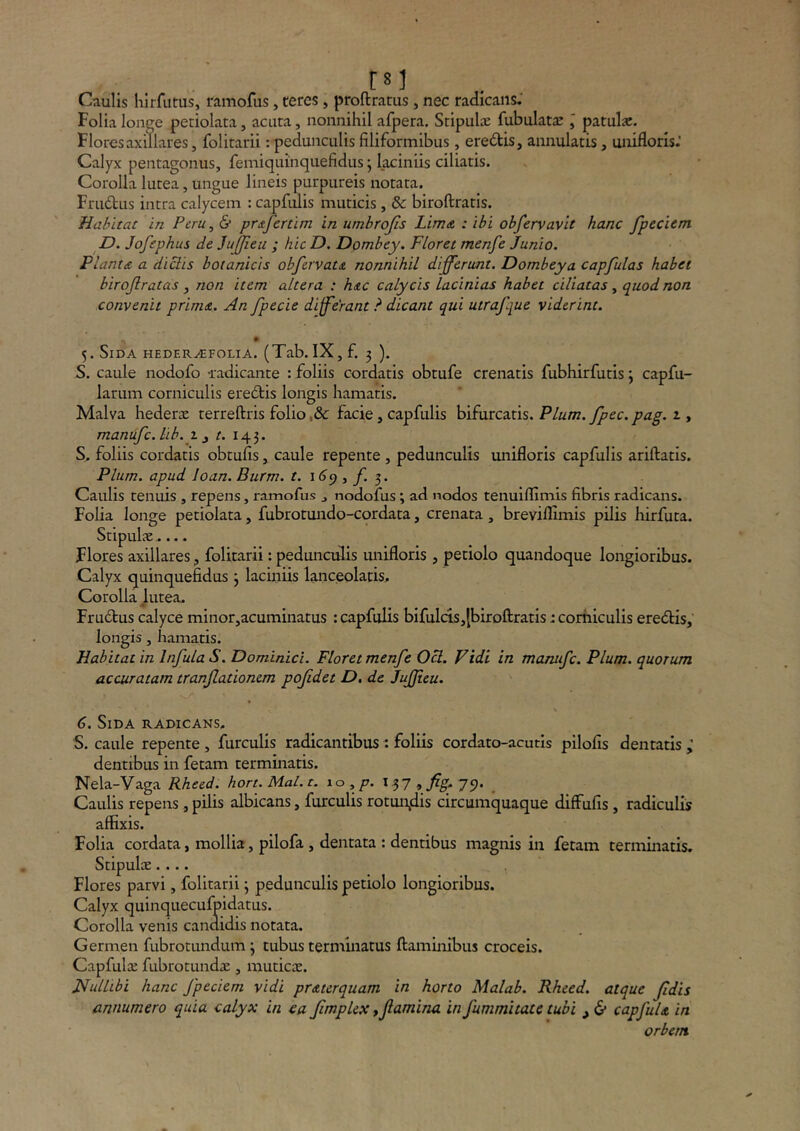 [8]
Caulis hirſutus, ramoſus, teres, proſtratus, nec radicans.
Folia longe petiolata, acuta, nonnihil aſpera. Stipulæ ſubulatæ, patulæ.
Flores axillares, ſolitarii : pedunculis filiformibus, erectis, annulatis, unifloris.
Calyx pentagonus, ſemiquinquefidus; laciniis ciliatis.
Corolla lutea, ungue lineis purpureis notata.
Fructus intra calycem : capſulis muticis, & biroſtratis.
Habitat in Peru, & præſertim in umbroſis Limæ : ibi obſervavit hanc ſpeciem
D. Joſephus de Juſſieu ; hic D. Dombey. Floret menſe Junio.
Plantæ a dictis botanicis obſervatæ nonnihil differunt. Dombeya capſulas habet
biroſtratas, non item altera : hæc calycis lacinias habet ciliatas, quod non
convenit primæ. An ſpecie differant ? dicant qui utraſque viderint.
5. SIDA HEDERÆFOLIA. (Tab. IX, f. 3 ).
S. caule nodoſo radicante : foliis cordatis obtuſe crenatis ſubhirſutis; capſu-
larum corniculis erectis longis hamatis.
Malva hederæ terreſtris folio & facie, capſulis bifurcatis. Plum. ſpec. pag. 2,
manuſc. lib. 2, t. 143.
S. foliis cordatis obtuſis, caule repente, pedunculis unifloris capſulis ariſtatis.
Plum. apud Joan. Burm. t. 169, f. 3.
Caulis tenuis, repens, ramoſus, nodoſus; ad nodos tenuiſſimis fibris radicans.
Folia longe petiolata, ſubrotundo-cordata, crenata, breviſſimis pilis hirſuta.
Stipulæ....
Flores axillares, ſolitarii : pedunculis unifloris, petiolo quandoque longioribus.
Calyx quinquefidus; laciniis lanceolatis.
Corolla lutea.
Fructus calyce minor, acuminatus : capſulis bifulcis, biroſtratis : corniculis erectis,
longis, hamatis.
Habitat in Inſula S. Dominici. Floret menſe Oct. Vidi in manuſc. Plum. quorum
accuratam tranſlationem poſidet D. de Juſſieu.
6. SIDA RADICANS.
S. caule repente, ſurculis radicantibus : foliis cordato-acutis piloſis dentatis;
dentibus in ſetam terminatis.
Nela-Vaga Rheed. hort. Mal. t. 10, p. 137, fig. 79.
Caulis repens, pilis albicans, ſurculis rotundis circumquaque diffuſis, radiculis
affixis.
Folia cordata, mollia, piloſa, dentata : dentibus magnis in ſetam terminatis.
Stipulæ....
Flores parvi, ſolitarii; pedunculis petiolo longioribus.
Calyx quinquecuſpidatus.
Corolla venis candidis notata.
Germen ſubrotundum; tubus terminatus ſtaminibus croceis.
Capſulæ ſubrotundæ, muticæ.
Nullibi hanc ſpeciem vidi præterquam in horto Malab. Rheed. atque ſidis
annumero quia calyx in ea ſimplex, ſtamina in ſummitate tubi, & capſulæ in
orbem